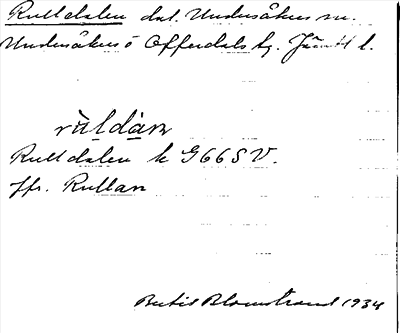 Rulldalen dal. Undersåkers sn.
Undersåkers o Offerdals tg. Jämtl l.
rùldàṇ
Rulldalen k G66SV.
jfr. Rullan
Bertil Blomstrand 1934